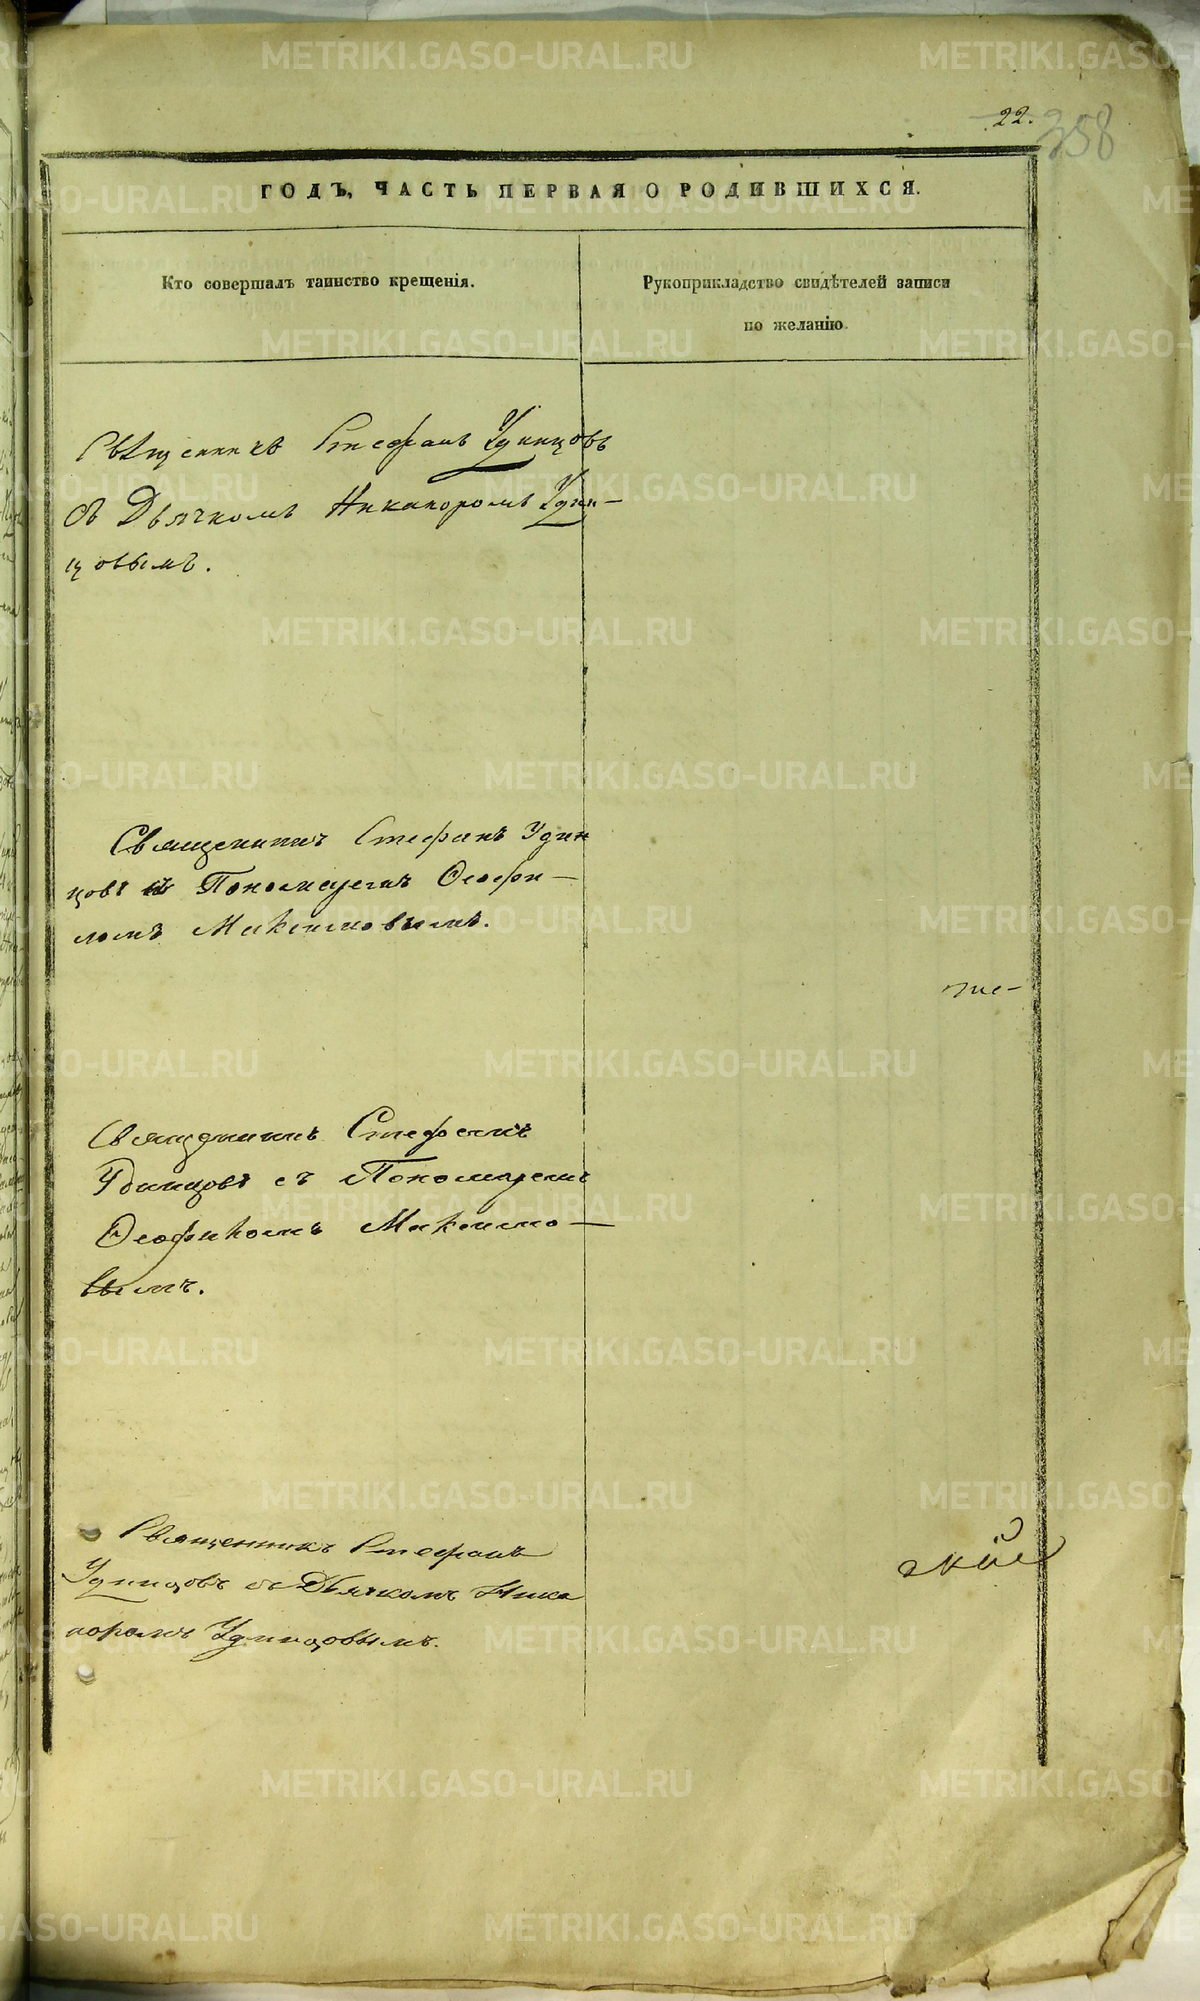 22.
358
ГОДЪ, ЧАСТЬ ПЕРВАЯ О РОДИВШИХСЯ.
Кто совершалъ таинство крещенія.
Рукоприкладство свидѣтелей записи
по желанію.
Священникъ Стефанъ Удинцовъ
съ Дьячкомъ Никаноромъ Удин-
цовымъ.
Священникъ Стефанъ Удин
цовъ съ Пономаремъ Ѳеофи-
ломъ Максимовымъ.
Священникъ Стефанъ
Удинцовъ съ Пономаремъ
Ѳеофиломъ Максимо-
вымъ.
Священникъ Стефанъ
Удинцовъ съ Дьячкомъ Ника
норомъ Удинцовымъ.
METRIKI.GASO-URAL.RU